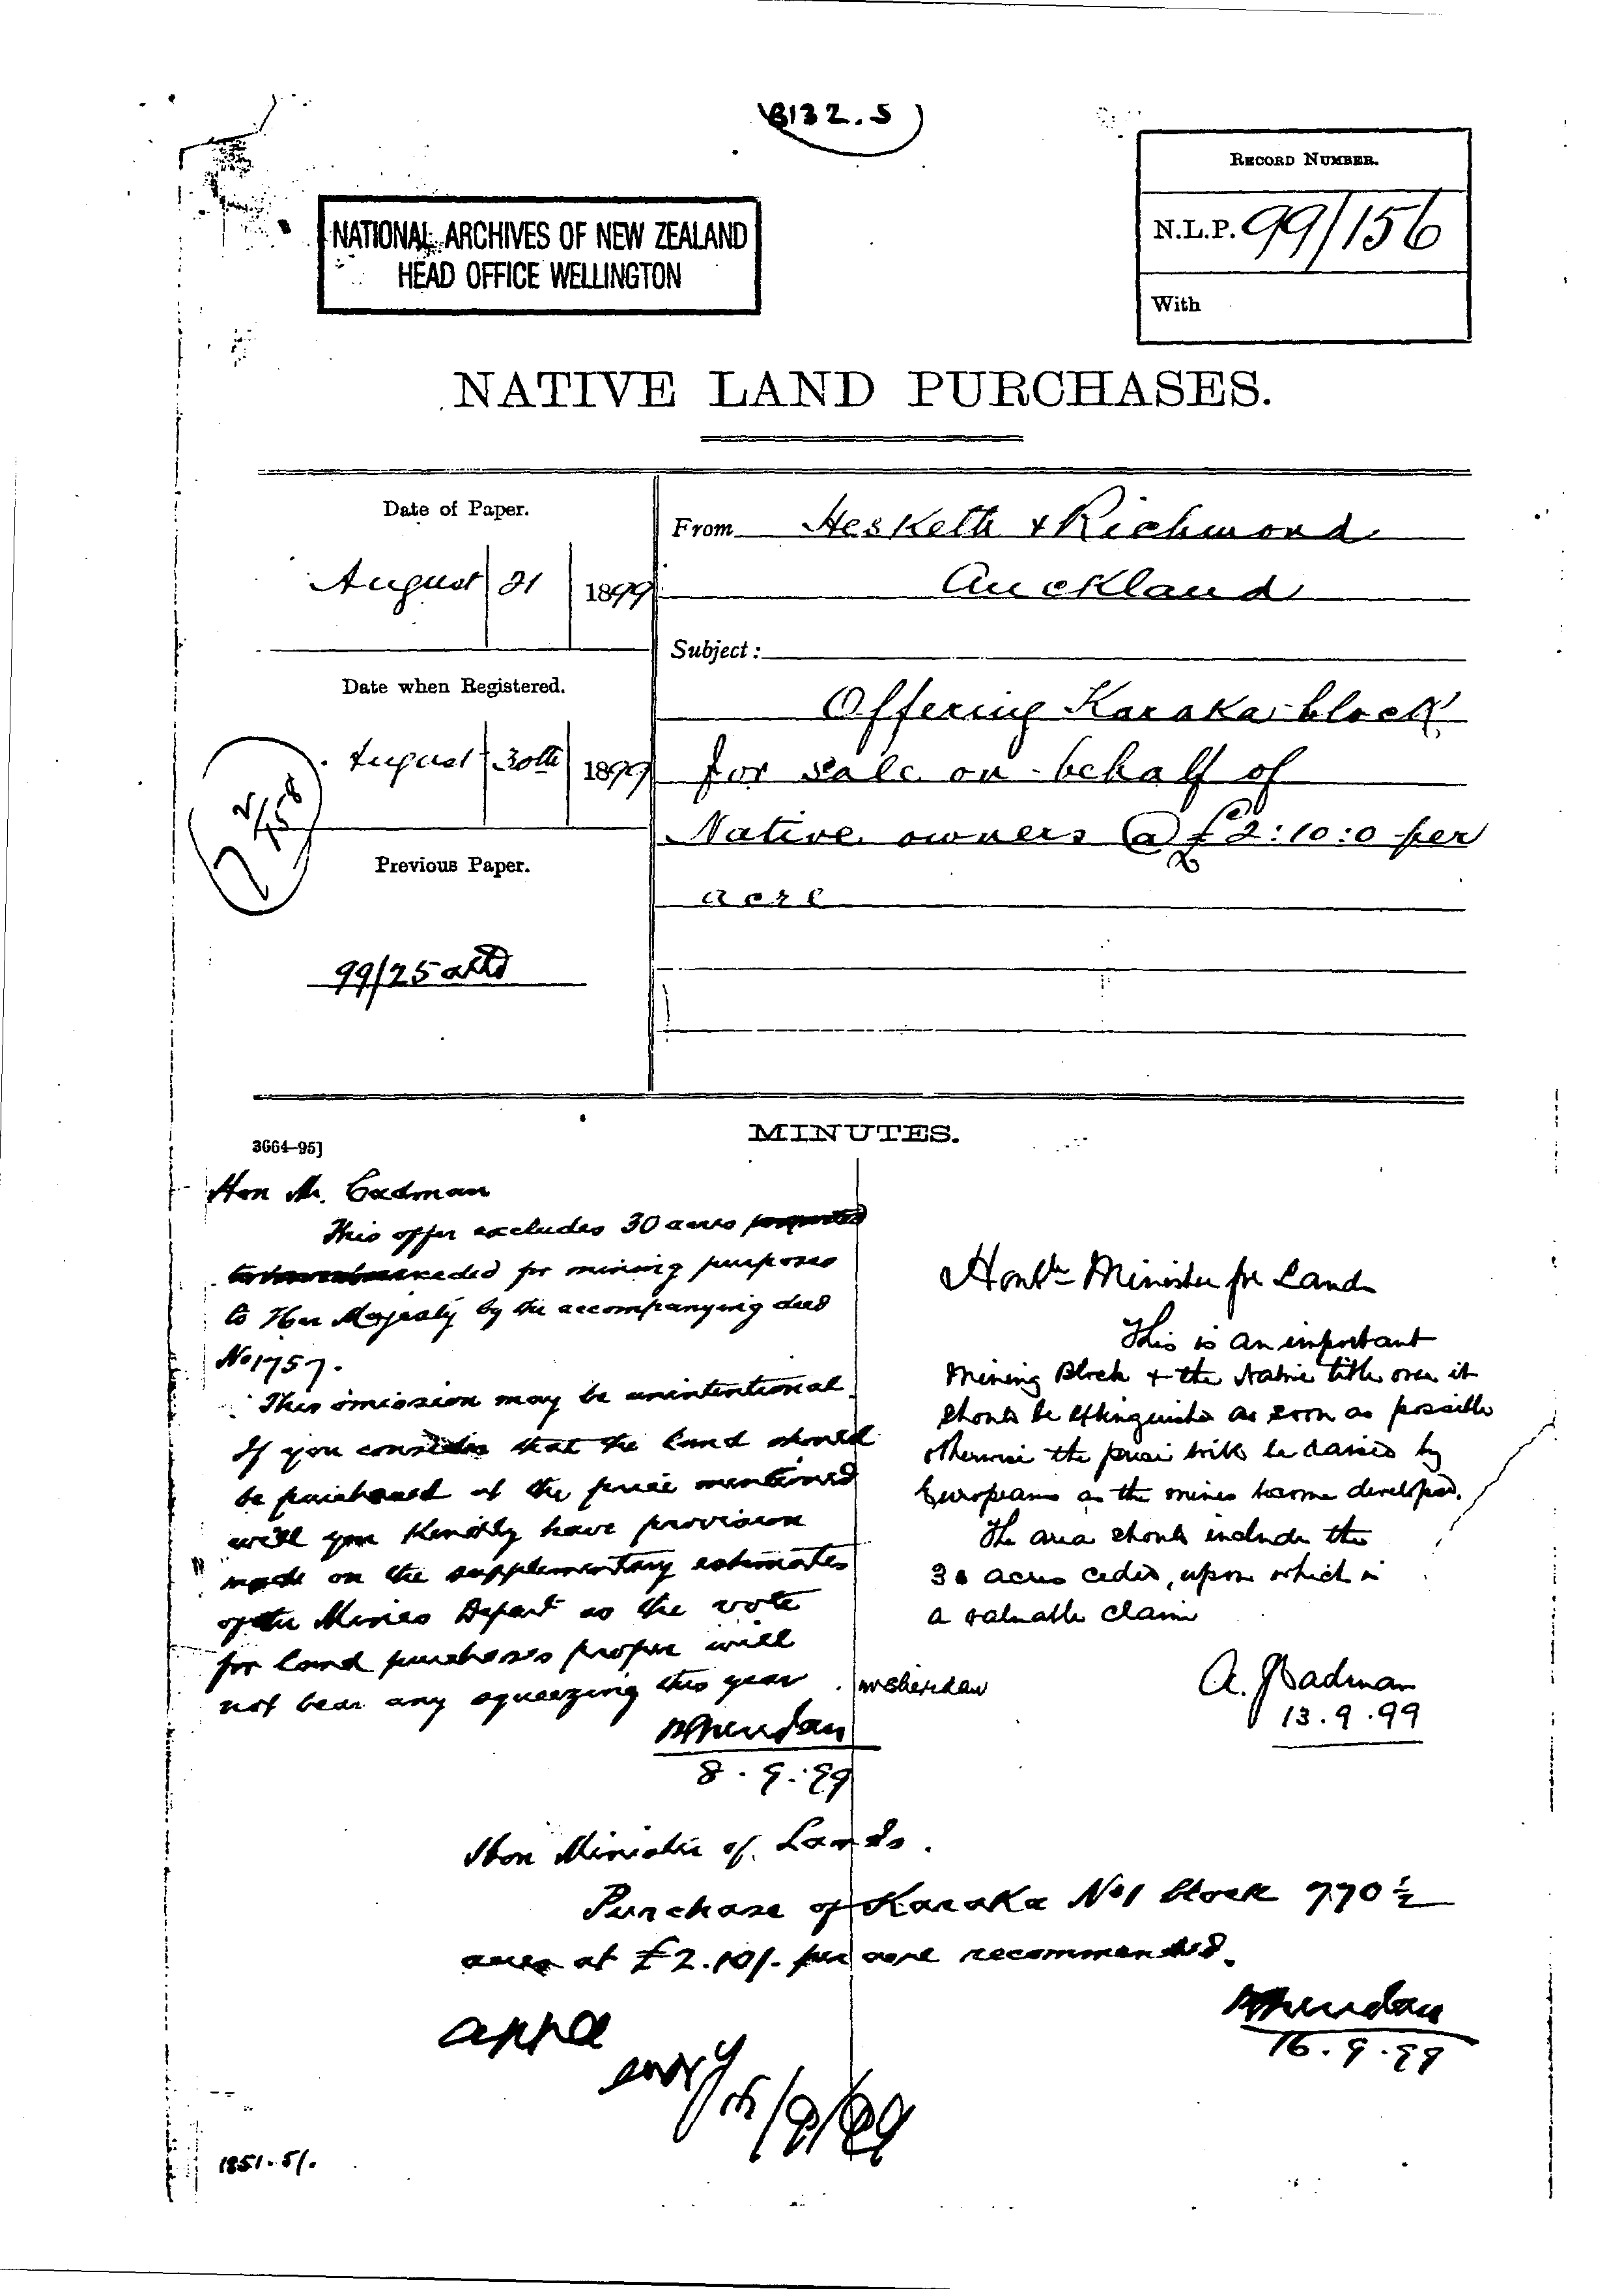 B132.5
NATIONAL ARCHIVES OF NEW ZEALAND
HEAD OFFICE WELLINGTON
RECORD NUMBER.
N.L.P. 99/156
With
NATIVE LAND PURCHASES.
Date of Paper.
August 21 1899
Date when Registered.
August 30th 1899
Previous Paper.
99/25 attd
From Hesketh & Richmond
Auckland
Subject:
Offering Karaka block
for sale on behalf of
Native owners @ £2:10:0 per
acre
3664-95]
MINUTES.
Hon Mr. Cadman
This offer excludes 30 acres
ceded for mining purposes
to Her Majesty by the accompanying deed
No 1757.
This omission may be unintentional.
If you consider that the land should
be purchased at the price mentioned
will you kindly have provision
made on the supplementary estimates
of the Mines Depart as the vote
for land purchases proper will
not bear any squeezing this year.
P Sheridan
8.9.99
Mr Sheridan
Honble Minister for Lands
This is an important
Mining Block & the Native title over it
should be extinguished as soon as possible
otherwise the price will be raised by
Europeans as the mines become developed.
The area should include the
30 acres ceded, upon which is
a valuable claim
A. J Cadman
13.9.99
Hon Minister of Lands.
Purchase of Karaka No 1 block 770 1/2
acres at £2.10/- per acre recommended.
P Sheridan
16.9.99
appd
/9/99
1851.5/.